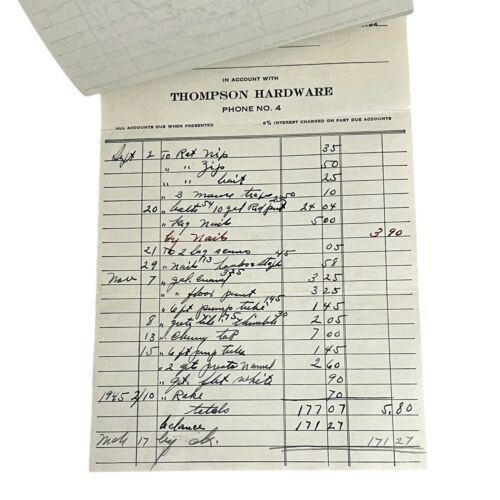 IN ACCOUNT WITH
THOMPSON HARDWARE
PHONE NO. 4
ALL ACCOUNTS DUE WHEN PRESENTED 6% INTEREST CHARGED ON PAST DUE ACCOUNTS
Sept 2 To Rat Nip 35
" " Zip 50
" " bait 25
" 3 mouse traps 10
20 " bolts 54 10 gal Red 24 04
" Keg Nails 5 00
by Nails 3 90
21 To 2 lag screws 05
29 " Nails 13 58
Nov 7 " gal. 3 25
" " floor paint 3 25
" 6 ft pump tube 145 1 45
8 " 175 30 2 05
13 " Chimney top 7 00
15 " 6 ft pump tube 1 45
" 2 qts 2 60
" qt. flat white 90
1945 2/10 " Rake 70
totals 177 07 5.80
balance 171 27
Mch 17 by ck. 171 27